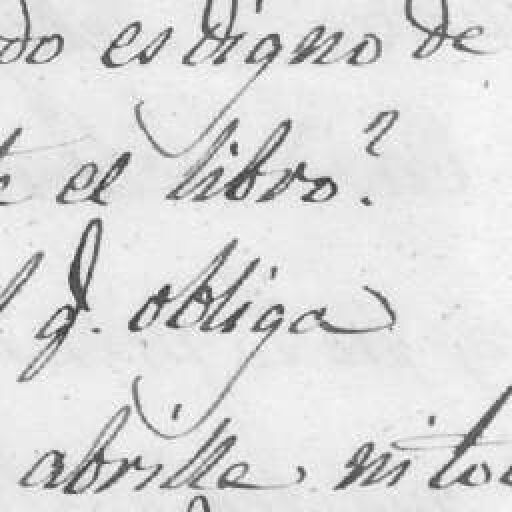 do es digno de
el libro?
q. obliga
abrille. ni